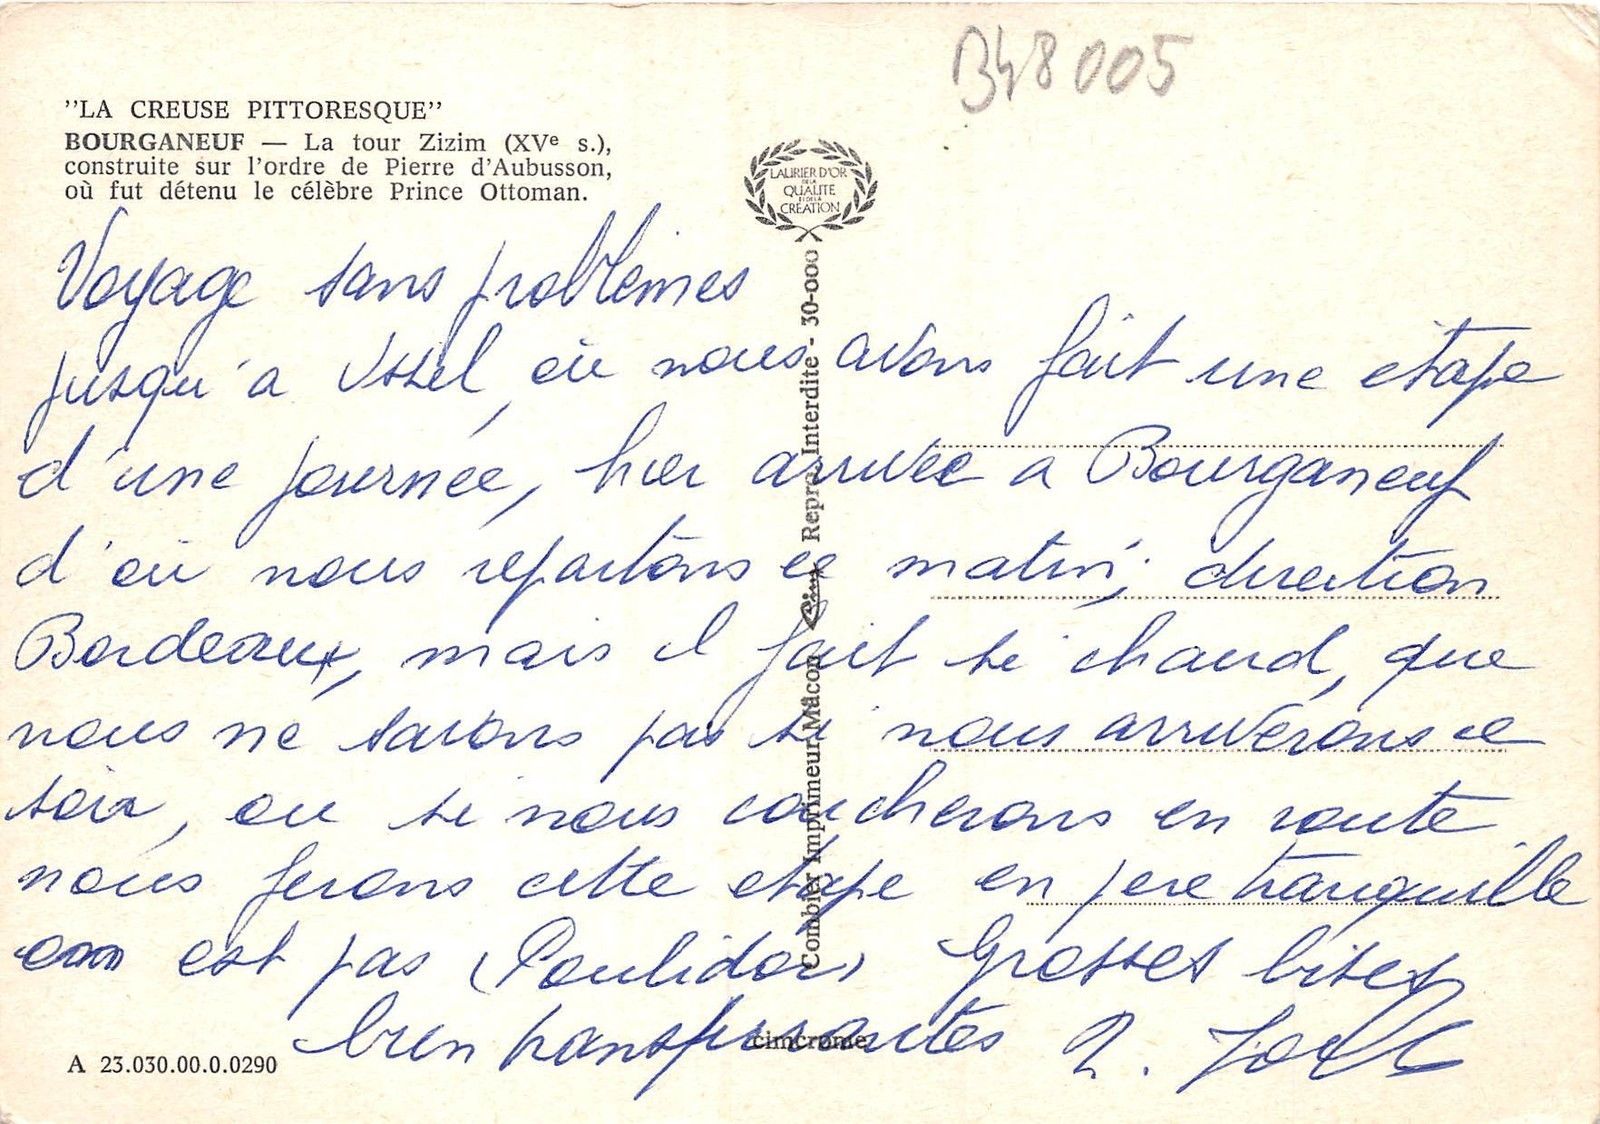 B48005
"LA CREUSE PITTORESQUE"
BOURGANEUF — La tour Zizim (XVe s.),
construite sur l'ordre de Pierre d'Aubusson,
où fut détenu le célèbre Prince Ottoman.
LAURIER D'OR
DE LA
QUALITE
ET DE LA
CREATION
Combier Imprimeur Macon Cim Repro. Interdite - 30-000
Voyage sans problèmes
jusqu'a Ussel, où nous avons fait une étape
d'une journée, hier arrivée a Bourganeuf
d'où nous repartons ce matin, direction
Bordeaux, mais il fait si chaud, que
nous ne savons pas si nous arriverons ce
soir, ou si nous coucherons en route
nous ferons cette etape en père tranquille
est pas Poulidor, Grosses bises
bien transpirantes Joël
cimcrome
A 23.030.00.0.0290